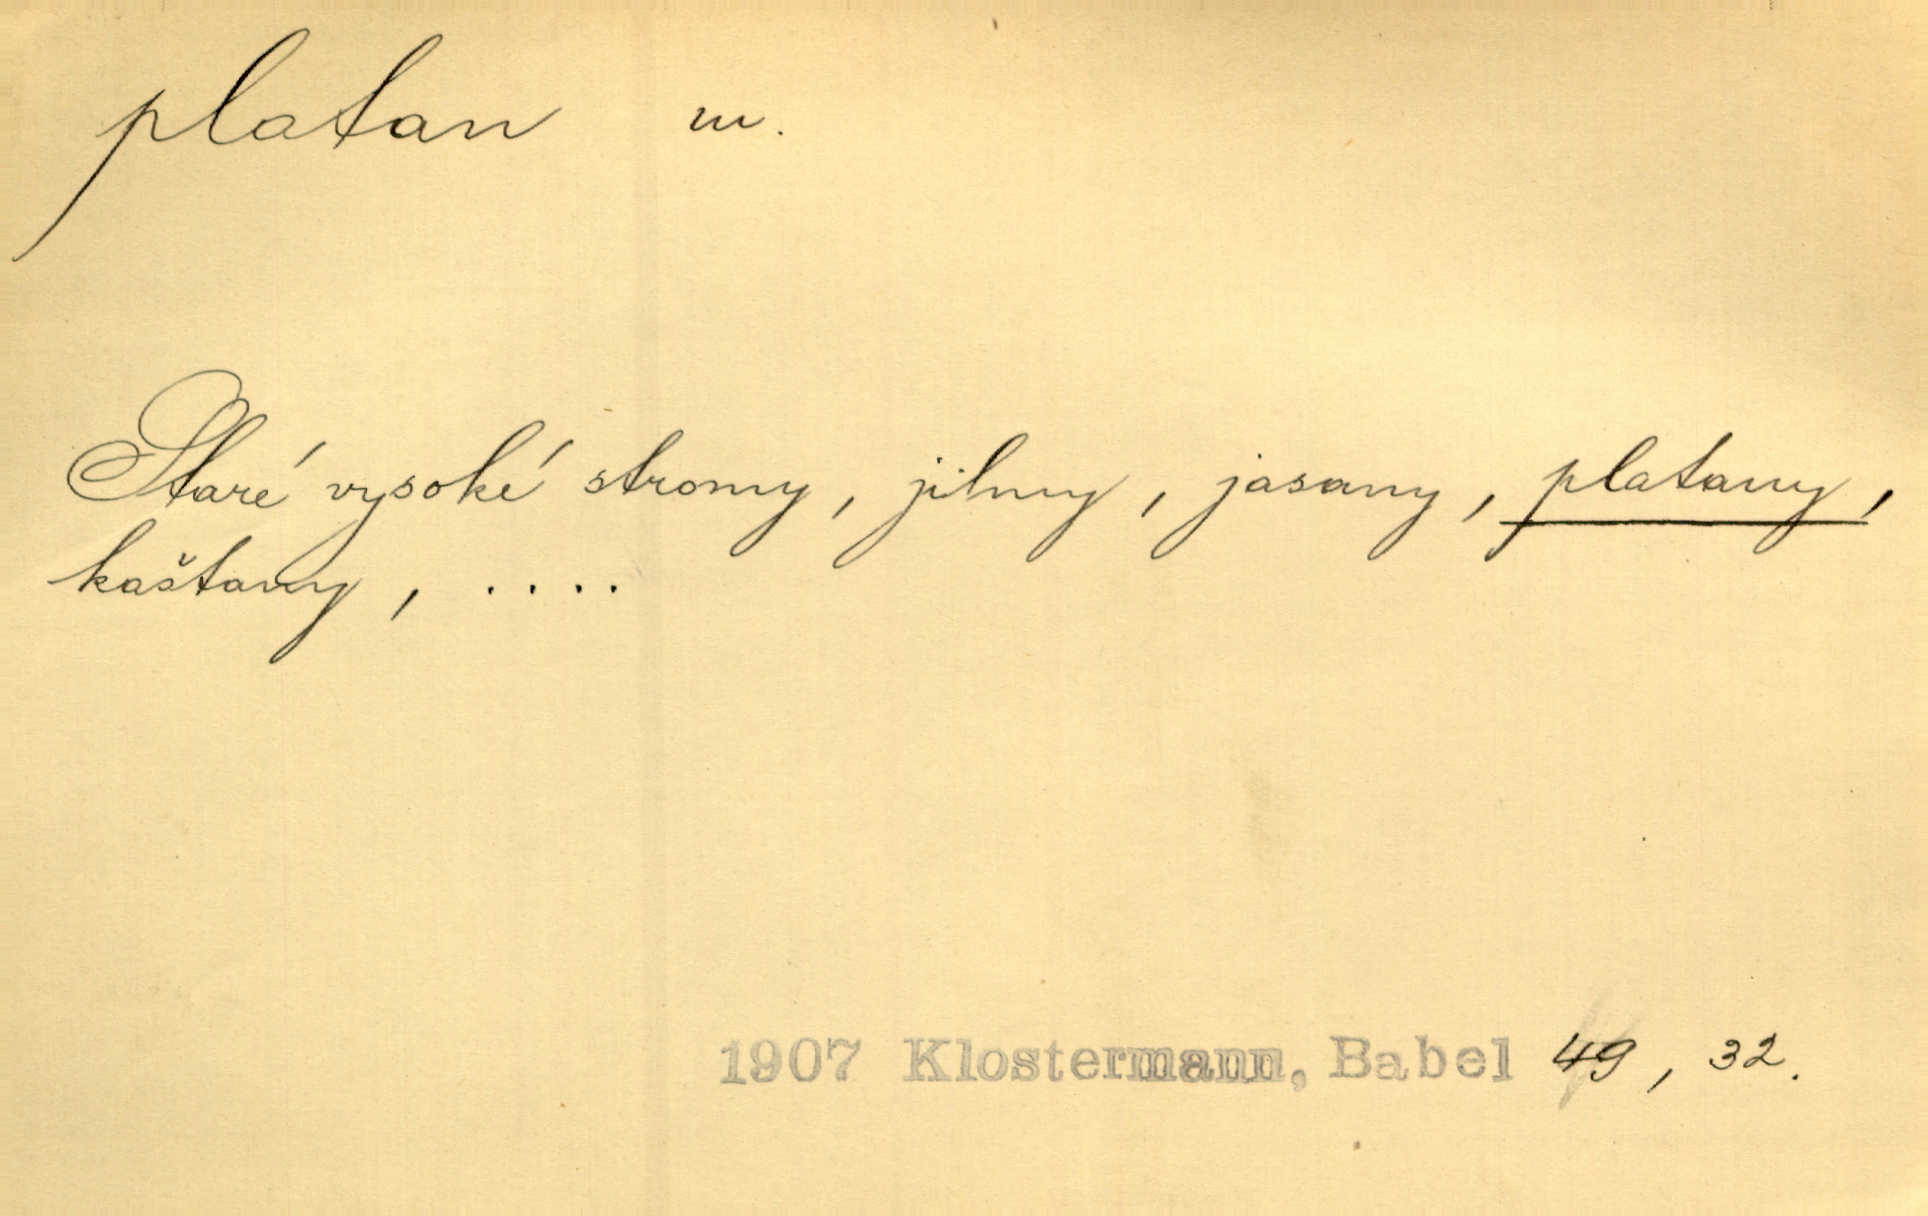 platan m.
Staré vysoké stromy, jilmy, jasany, platany,
kaštany, ....
1907 Klostermann, Babel 49, 32.